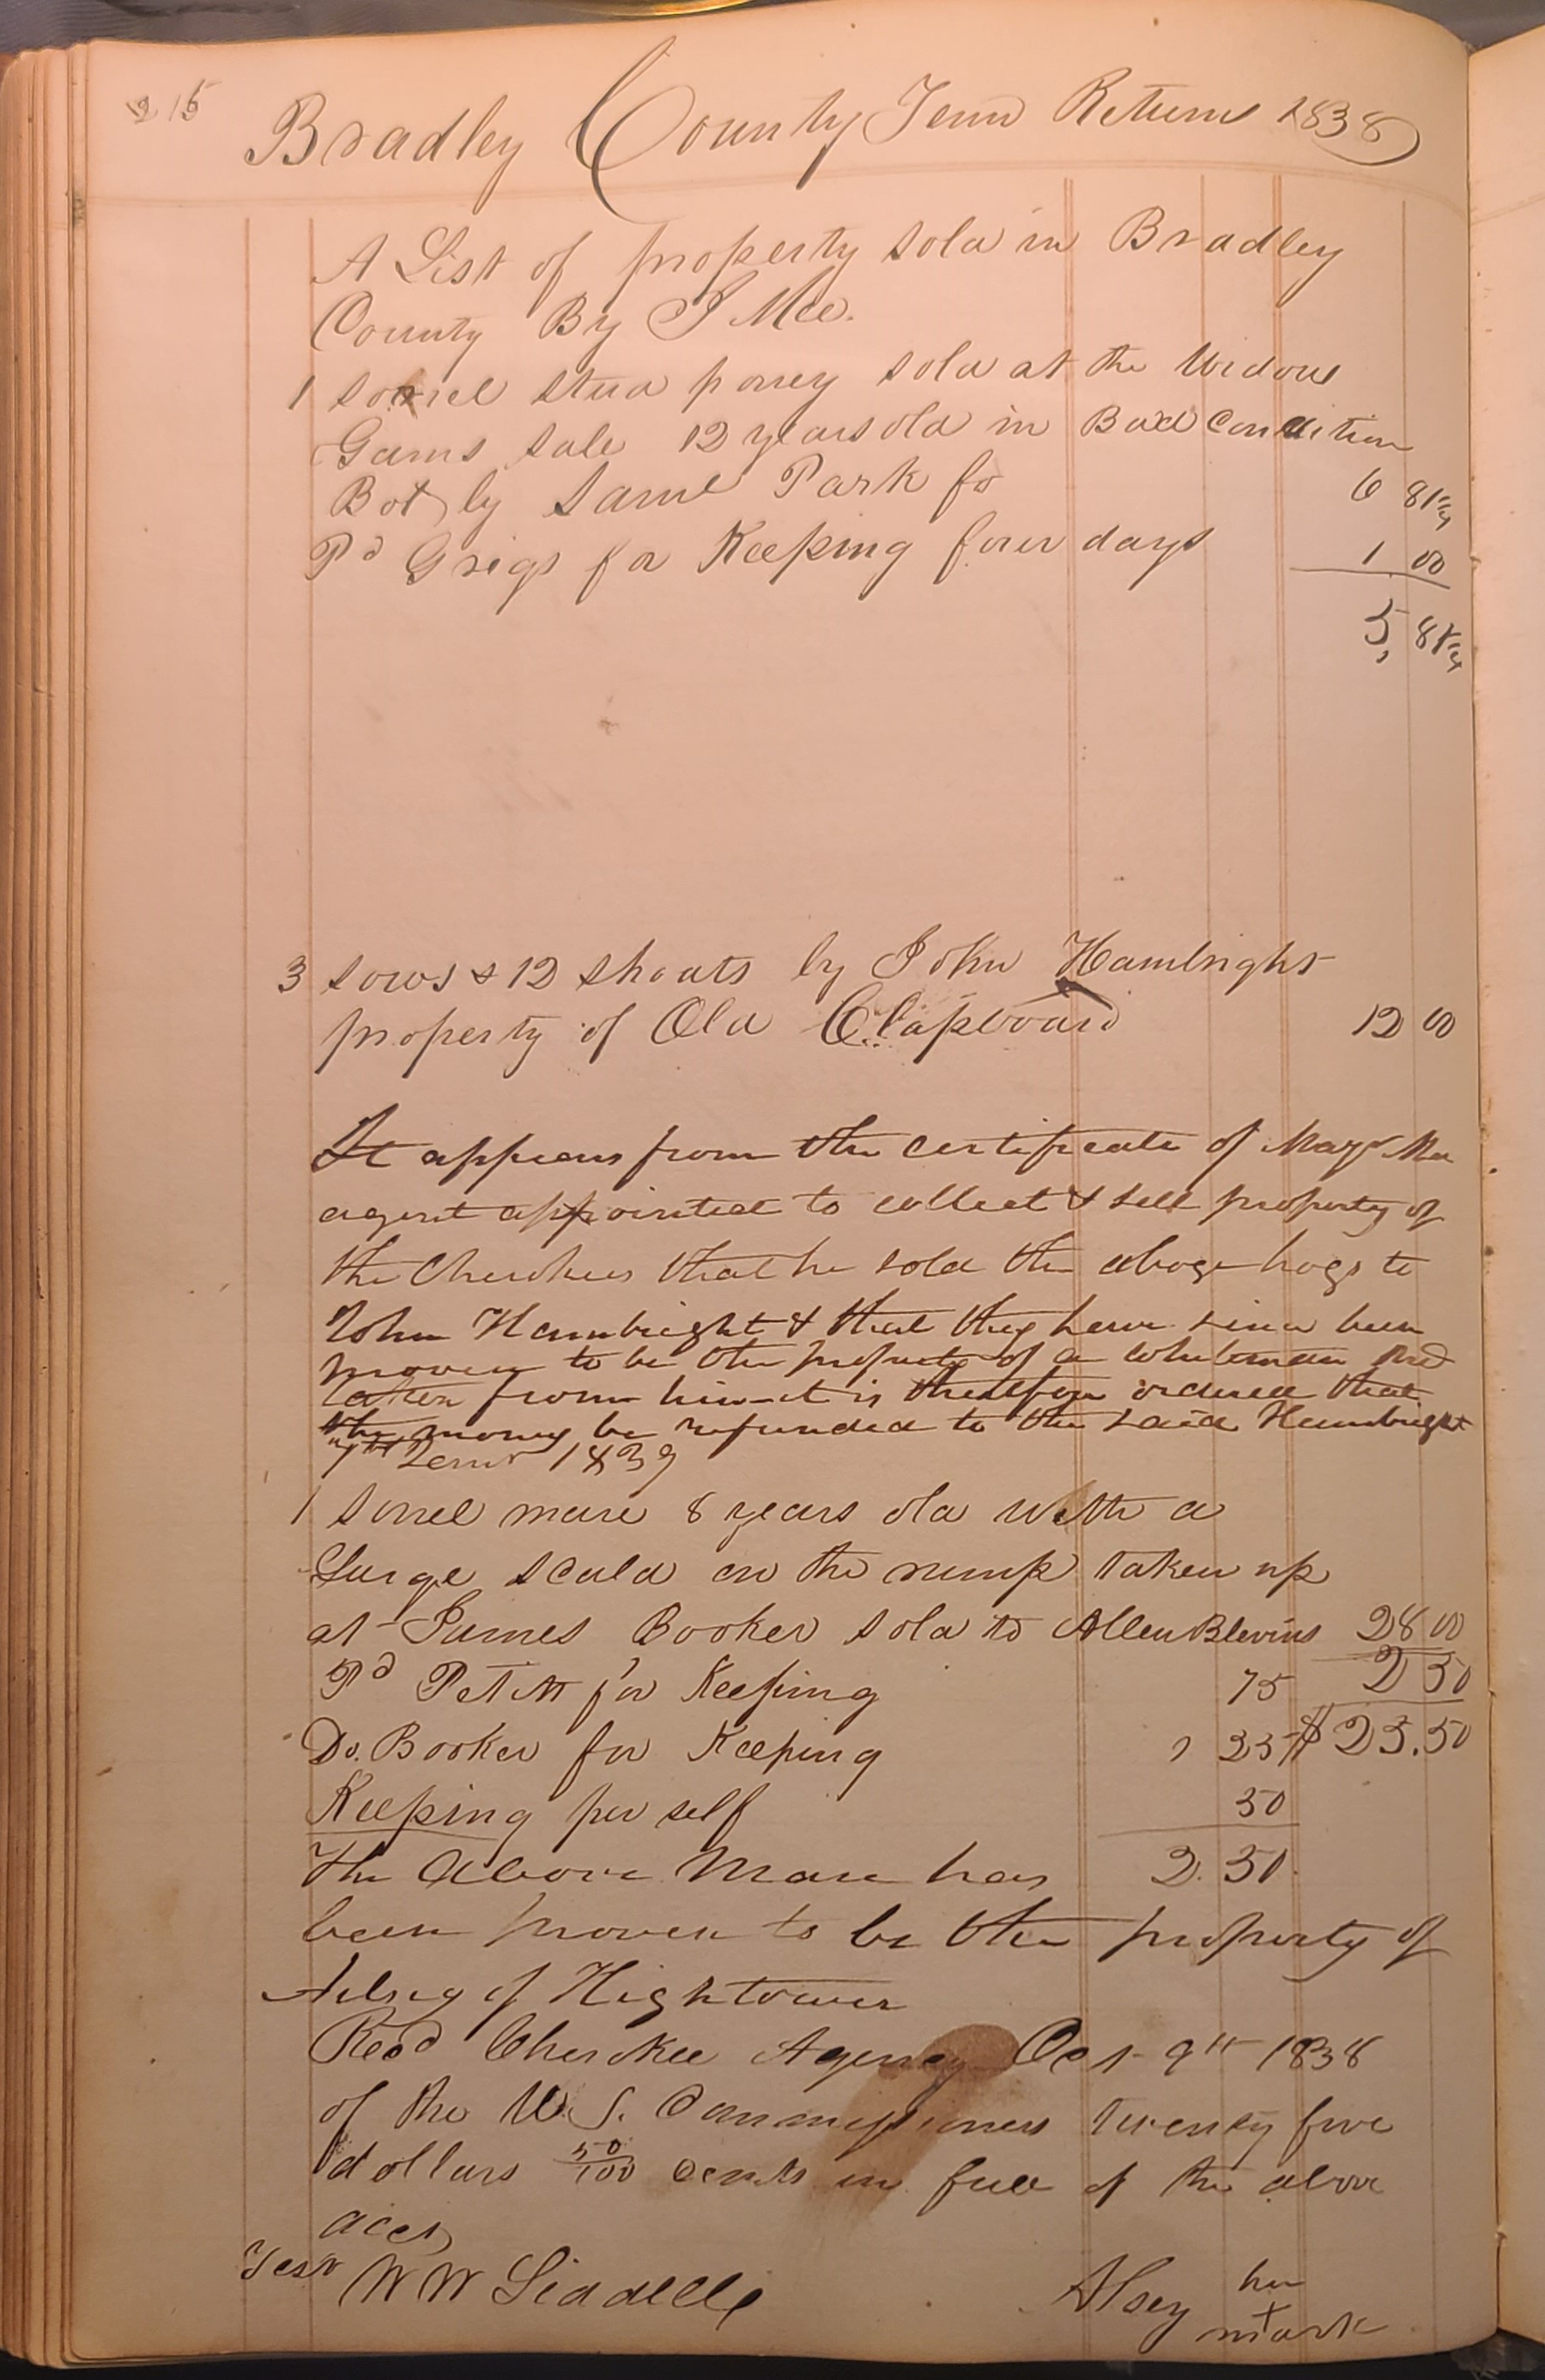 215
Bradley County Tenn Returns 1838
A List of property sold in Bradley
County By J Mee.
1 sorriel stud poney sold at the Widows
Gams sale 12 years old in Bad Condition
Bot by Saml Park for 6 81 1/4
Pd Grigs for Keeping four days 1 00
5, 81 1/4
3 sows & 12 shoats by John Hambright
property of Old Clapboard 12 00
It appears from the certificate of Majr Mee
agent appointed to collect & sell property of
the Cherokees that he sold the above hogs to
John Hambright & that they have since been
proven to be the property of a whiteman and
taken from him it is therefore ordered that
the money be refunded to the said Hambright
1839
1 sorrel mare 8 years old with a
Large scald on the rump taken up
at James Booker sold to Allen Blevins 28 00
Pd Petitt for Keeping 75 2 50
Do. Booker for Keeping 1 25 $25.50
Keeping per self 50
The Above Mare has 2.50
been proven to be the property of
of Hightower
Recd Cherokee Agency Oct 9th 1838
of the U.S. Commissioners Twenty five
dollars 50/100 cents in full of the above
acct
Test W W Liddell
Alsey her
x
mark